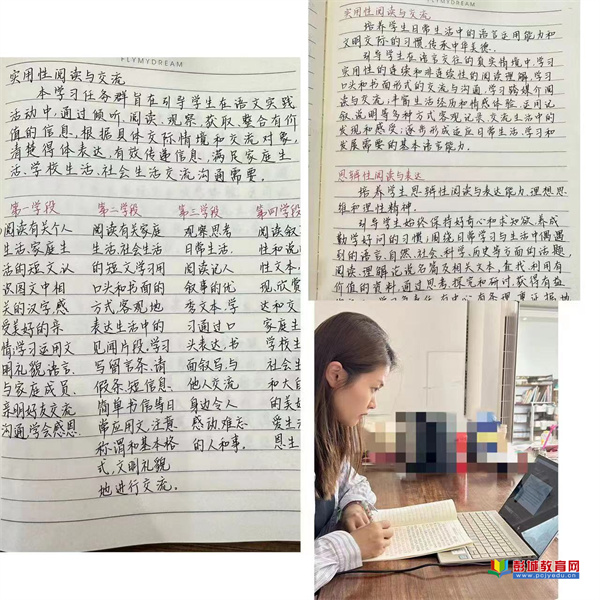 FLYMYDREAM
实用性阅读与交流
本学习任务群旨在引导学生在语文实践
活动中,通过倾听、阅读、观察,获取、整合有价
值的信息,根据具体交际情境和交流对象,
清楚得体表达,有效传递信息,满足家庭生
活、学校生活、社会生活交流沟通需要。
第一学段
阅读有关个人
生活、家庭生
活的短文,认
识图文中相
关的汉字,感
受美好的亲
情;学习运用文
明礼貌语言,
与家庭成员、
亲朋好友交流
沟通,学会感恩
第二学段
阅读有关家庭
生活、社会生活
的短文,学习用
口头和书面的
方式,客观地
表达生活中的
见闻片段,学习
写留言条、请
假条、短信息、
简单书信等日
常应用文,注意
称谓和基本格
式,文明礼貌
地进行交流。
第三学段
观察、思考
日常生活,
阅读记人
叙事的优
秀文本,学
习通过口
头表达、书
面叙写,与
他人交流
身边令人
感动、难忘
的人和事。
第四学段
阅读叙
性和说
性文本,
现、欣赏
达和交
家庭生
学校生
社会生
和大自
的美好
爱生活
恩生
FLYMYDREAM
实用性阅读与交流
培养学生日常生活中的语言运用能力和
文明交际的习惯,传承中华美德。
引导学生在语言交往的真实情境中,学习
实用性的连续和非连续性的阅读理解,学习
口头和书面形式的交流与沟通,学习跨媒介阅
读与交流;丰富生活经历和情感体验,运用记
叙、说明等多种方式客观记录、交流生活中的
发现和感受;逐步形成适应日常生活、学习和
发展需要的基本语言能力。
思辨性阅读与表达
培养学生思辨性阅读与表达能力,理想思
维和理性精神。
引导学生始终保持好奇心和求知欲,养成
勤学好问的习惯;围绕日常学习与生活中偶遇
到的语言、自然、社会、科学、历史等方面的话题,
阅读、理解论说名篇及相关文本,查找、利用有
价值的资料,通过思考、探究和研讨,获得有益
彭城教育网
www.pcjyedu.cn